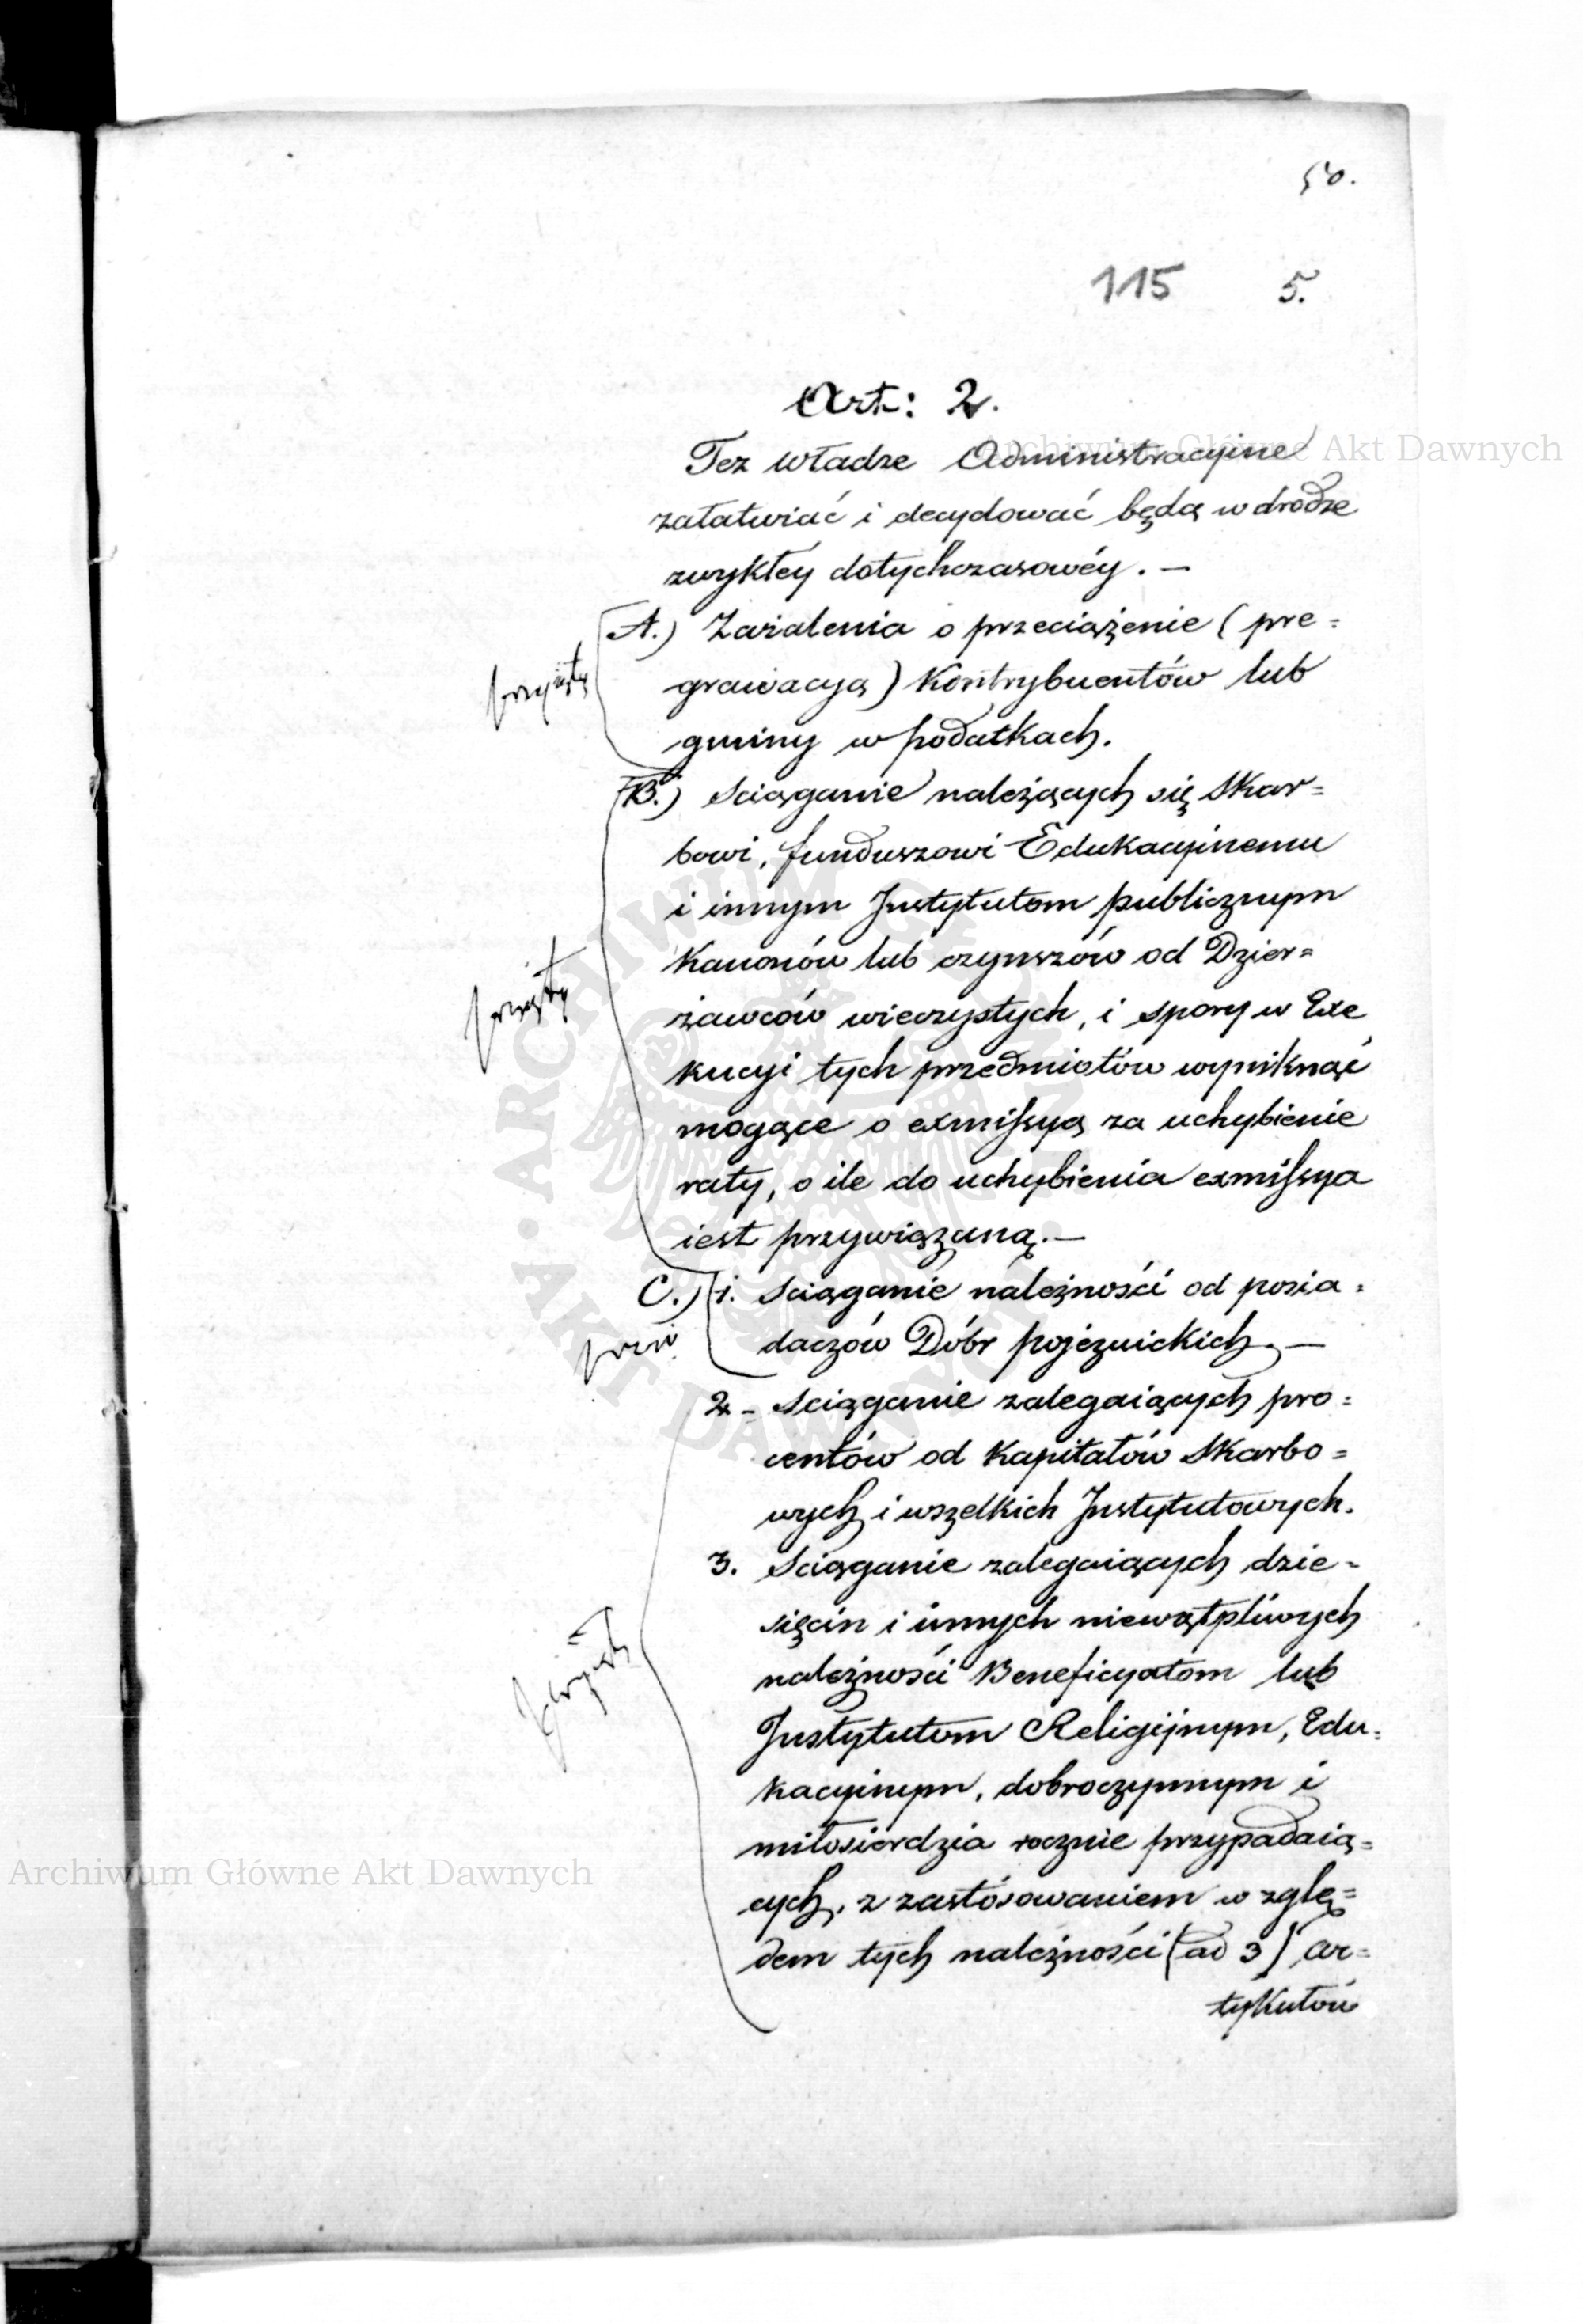 50.
115 5.
Art: 2.
Też władze Administracyine
załatwiać i decydować będą w drodze
zwykłéy dotychczasowéy. —
A.) Zażalenia o przeciążenie (pre=
grawacyą) Kontrybuentów lub
gminy w podatkach.
przyięty
B.) Sciąganie należących się Skar=
bowi, funduszowi Edukacyinemu
i innym Instytutom publicznym
Kanonów lub czynszów od Dzier=
żawców wieczystych, i spory w Exe
kucyi tych przedmiotów wyniknąć
mogące o exmissyą za uchybienie
raty, o ile do uchybienia exmissya
iest przywiązaną. —
przyięty
C.) 1. Sciąganie należności od posia=
daczów Dóbr pojezuickich. —
2 - Sciąganie zalegaiących pro=
centów od Kapitałów Skarbo=
wych i wszelkich Instytutowych.
3. Sciąganie zalegaiących dzie=
sięcin i innych niewątpliwych
należności Beneficyatom lub
Instytutom Religijnym, Edu=
kacyinym, dobroczynnym i
miłosierdzia rocznie przypadaią=
cych, z zastósowaniem w zglę=
dem tych należności (ad 3) ar=
tykułów
Archiwum Główne Akt Dawnych
Archiwum Główne Akt Dawnych